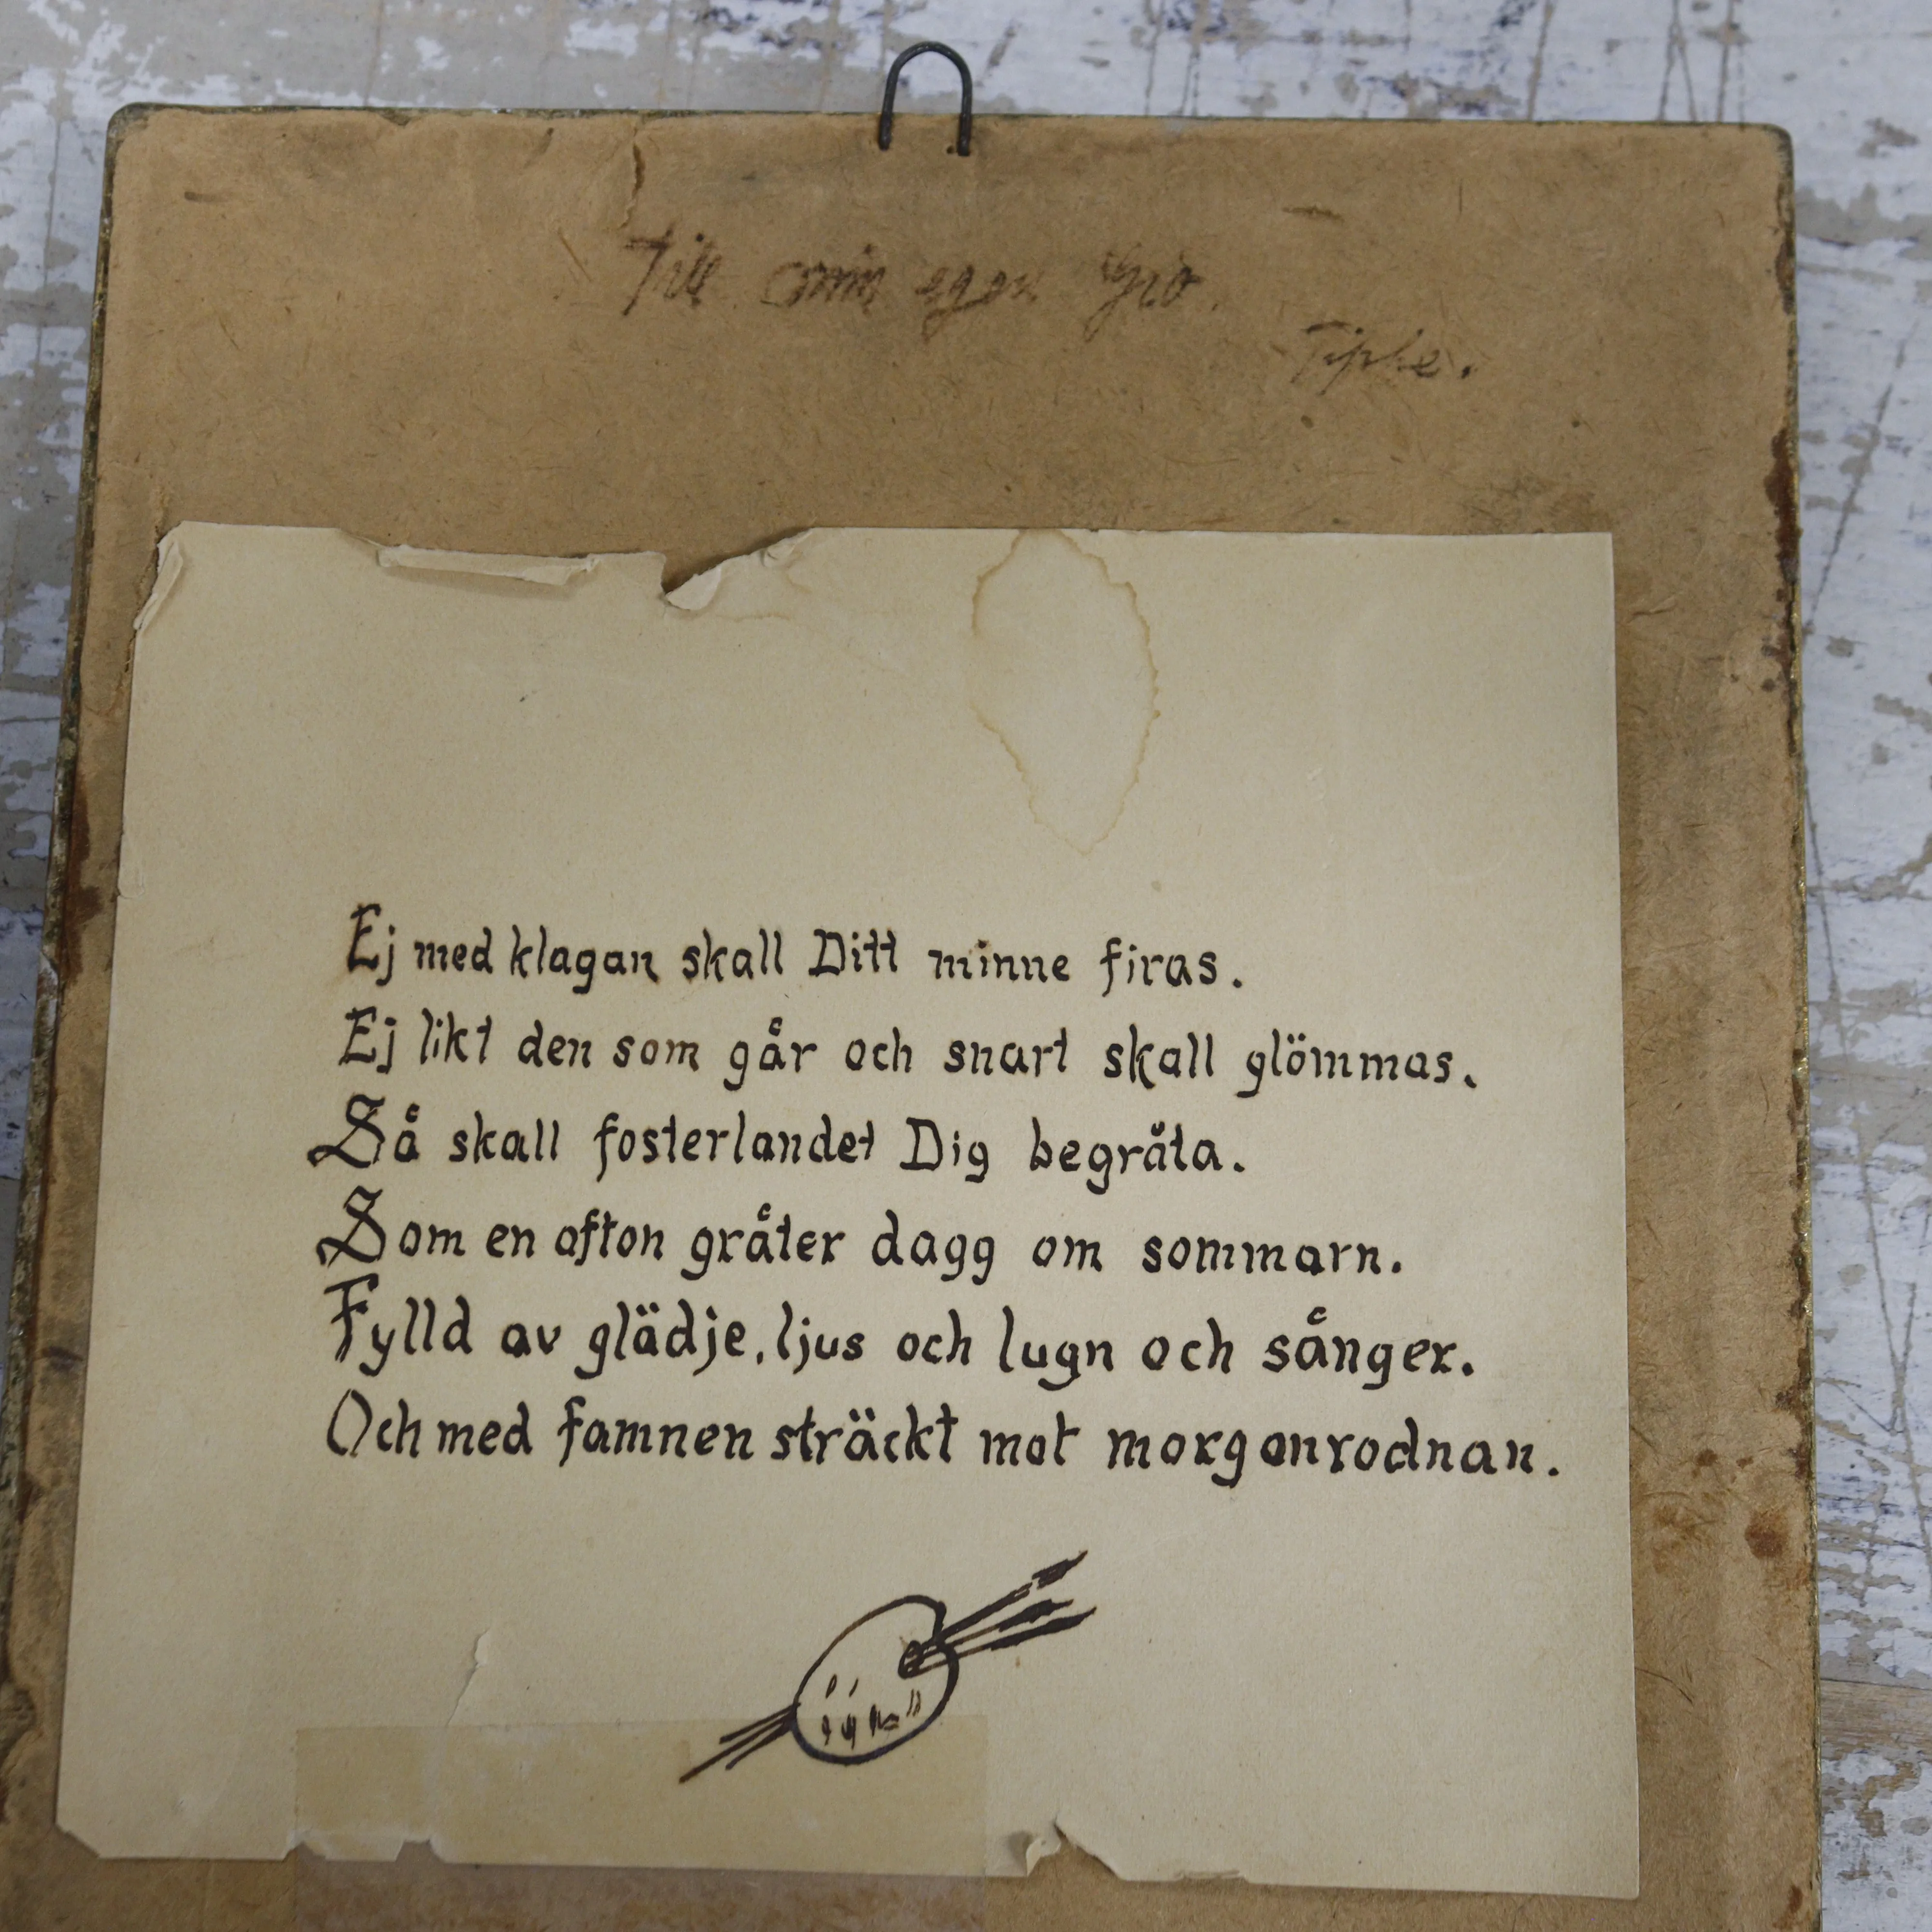 Till min egen
Ej med klagan skall Ditt minne firas.
Ej likt den som går och snart skall glömmas.
Så skall fosterlandet Dig begråta.
Som en afton gråter dagg om sommarn.
Fylld av glädje, ljus och lugn och sånger.
Och med famnen sträckt mot morgonrodnan.